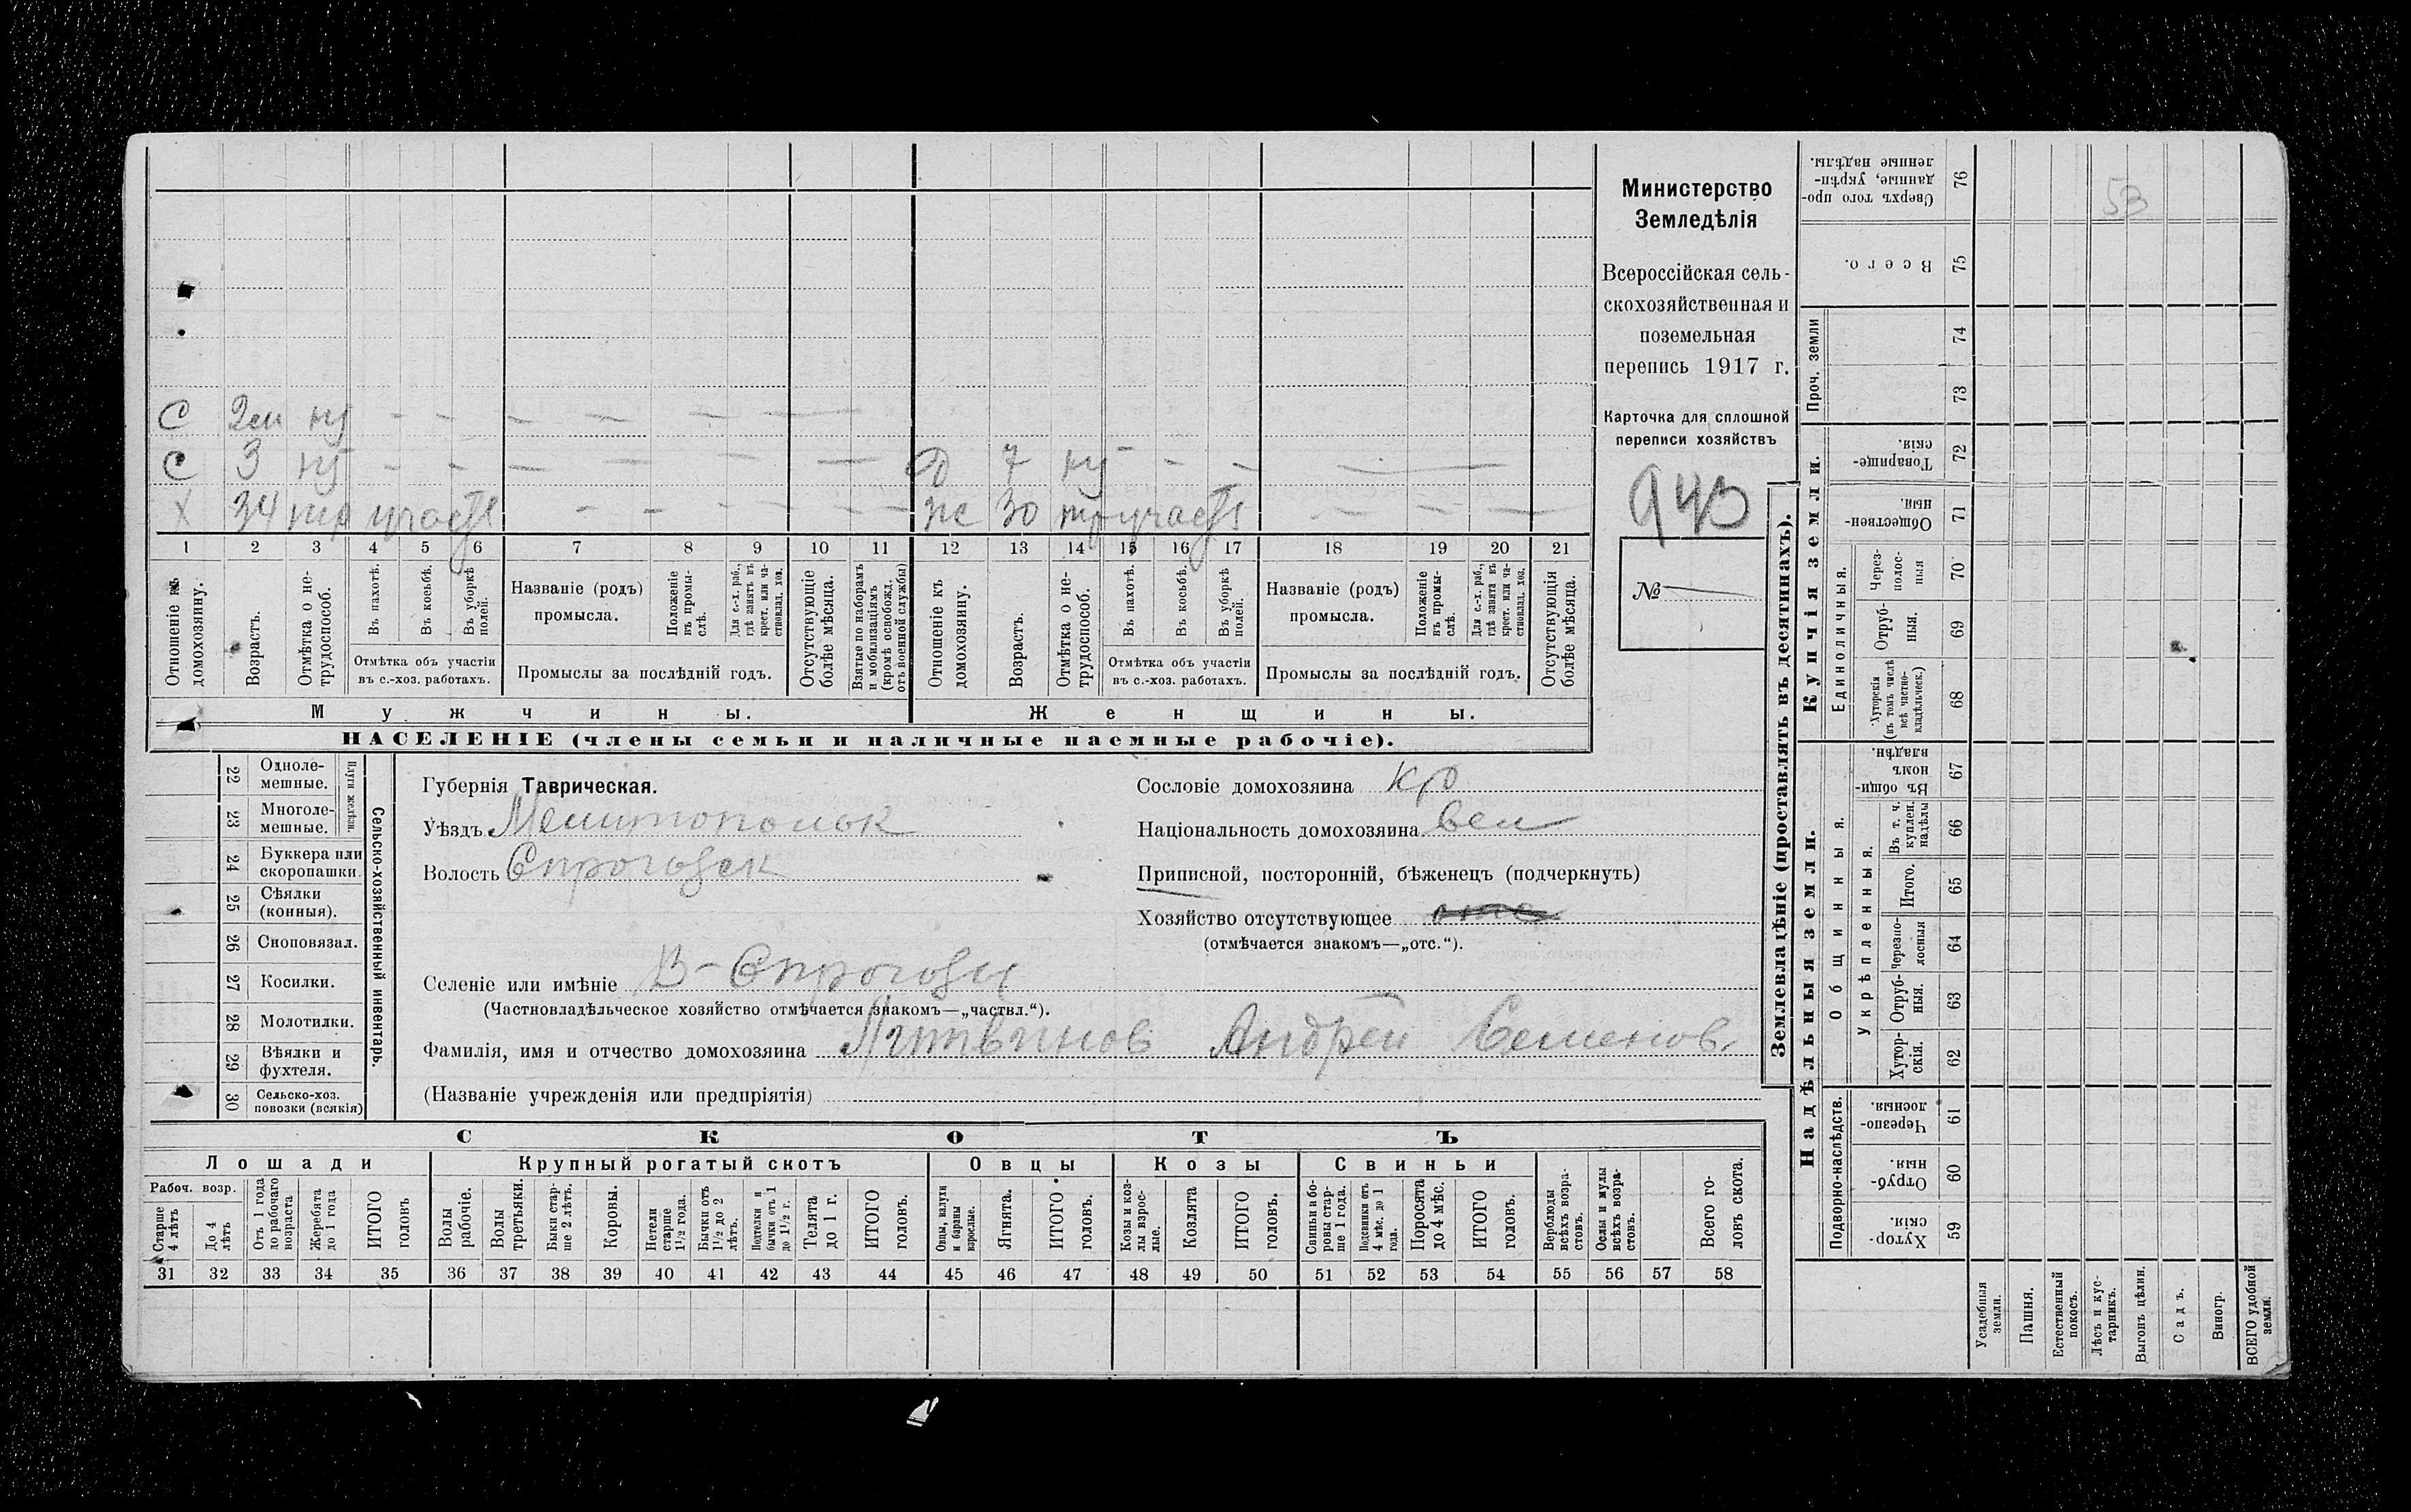 С 2м нт — — — — — —
С 3 нт — — — — — — Д 7 нт — — —
Х 34 тр участв — — — — — Ж 30 тр участв — — —
1 2 3 4 5 6 7 8 9 10 11 12 13 14 15 16 17 18 19 20 21
Отношеніе къ домохозяину.
Возрастъ.
Отмѣтка о не-трудоспособ.
Въ пахотѣ.
Въ косьбѣ.
Въ уборкѣ полей.
Отмѣтка объ участіи
въ с.-хоз. работахъ.
Названіе (родъ)
промысла.
Положеніе въ промы-слѣ.
Для с.-х. раб., гдѣ занятъ въ крест. или ча-стновлад. хоз.
Промыслы за послѣдній годъ.
Отсутствующіе болѣе мѣсяца.
Взятые по наборамъ и мобилизаціямъ (кромѣ освобожд. отъ военной службы)
Отношеніе къ домохозяину.
Возрастъ.
Отмѣтка о не-трудоспособ.
Въ пахотѣ.
Въ косьбѣ.
Въ уборкѣ полей.
Отмѣтка объ участіи
въ с.-хоз. работахъ.
Названіе (родъ)
промысла.
Положеніе въ промы-слѣ.
Для с.-х. раб., гдѣ занята въ крест. или ча-стновлад. хоз.
Промыслы за послѣдній годъ.
Отсутствующія болѣе мѣсяца.
Мужчины.
Женщины.
НАСЕЛЕНІЕ (члены семьи и наличные наемные рабочіе).
Министерство
Земледѣлія
Всероссійская сель-
скохозяйственная и
поземельная
перепись 1917 г.
Карточка для сплошной
переписи хозяйствъ
943
№
22 Одноле-мешные.
23 Многоле-мешные.
Плуги желѣзн.
24 Буккера или скоропашки.
25 Сѣялки (конныя).
26 Сноповязал.
27 Косилки.
28 Молотилки.
29 Вѣялки и фухтеля.
30 Сельско-хоз. повозки (всякія)
Сельско-хозяйственный инвентарь.
Губернія Таврическая.
Уѣздъ Мелитопольск
Волость
Селеніе или имѣніе
(Частновладѣльческое хозяйство отмѣчается знакомъ—„частвл.“).
Фамилія, имя и отчество домохозяина Литвинов Андрей Семенов.
(Названіе учрежденія или предпріятія)
Сословіе домохозяина кр
Національность домохозяина вел
Приписной, посторонній, бѣженецъ (подчеркнуть)
Хозяйство отсутствующее
(отмѣчается знакомъ—„отс.“).
СКОТЪ
Лошади
Крупный рогатый скотъ
Овцы
Козы
Свиньи
Рабоч. возр.
Старше 4 лѣтъ
До 4 лѣтъ
Отъ 1 года до рабочаго возраста
Жеребята до 1 года
ИТОГО головъ
Волы рабочіе.
Волы третьяки.
Быки стар-ше 2 лѣтъ.
Коровы.
Нетели старше 1½ года.
Бычки отъ 1½ до 2 лѣтъ.
Подтелки и бычки отъ 1 до 1½ г.
Телята до 1 г.
ИТОГО головъ.
Овцы, валухи и бараны взрослые.
Ягнята.
ИТОГО головъ.
Козы и коз-лы взрос-лые.
Козлята
ИТОГО головъ.
Свиньи и бо-ровы стар-ше 1 года.
Подсвинки отъ 4 мѣс. до 1 года.
Поросята до 4 мѣс.
ИТОГО головъ.
Верблюды всѣхъ возра-стовъ.
Ослы и мулы всѣхъ возра-стовъ.
Всего го-ловъ скота.
31 32 33 34 35 36 37 38 39 40 41 42 43 44 45 46 47 48 49 50 51 52 53 54 55 56 57 58
Землевладѣніе (проставлять въ десятинахъ).
Купчія земли.
Надѣльныя земли.
Проч. земли
Единоличныя.
Общинныя.
Укрѣпленныя.
Подворно-наслѣдств.
Сверхъ того про-данные, укрѣп-ленные надѣлы. 76
53
Всего. 75
74
73
Товарище-скія. 72
Обществен-ныя. 71
Через-полос-ныя 70
Отруб-ныя. 69
Хуторскія (въ томъ числѣ всѣ частно-владѣльческ.) 68
Въ общин-номъ владѣн. 67
Въ т. ч. куплен. надѣлы 66
Итого. 65
Черезпо-лосныя 64
Отруб-ныя. 63
Хутор-скія. 62
Черезпо-лосныя. 61
Отруб-ныя. 60
Хутор-скія. 59
Усадебныя земли.
Пашня.
Естественный покосъ.
Лѣсъ и кус-тарникъ.
Выгонъ цѣлин.
Садъ.
Виногр.
ВСЕГО удобной земли.